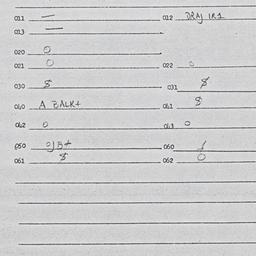 011 — 012 DRAJ IR1
013 —
020 0
021 0 022 0
030 $ 031 $
040 A BALK+ 041 $
042 0 043 0
050 060
061 $ 062 0